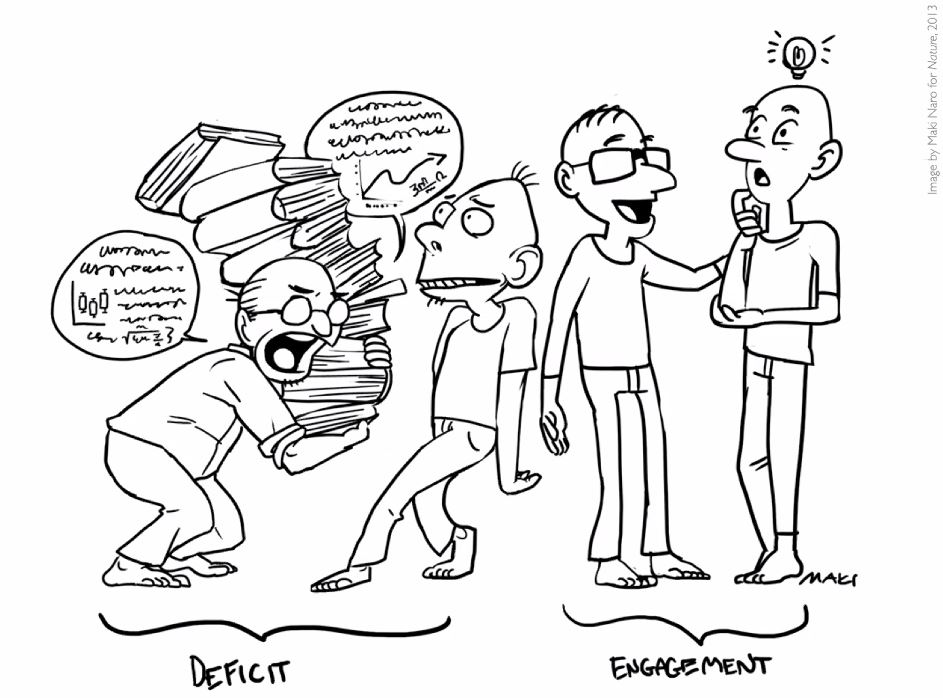 Image by Maki Naro for Nature, 2013
MAKI
DEFICIT
ENGAGEMENT